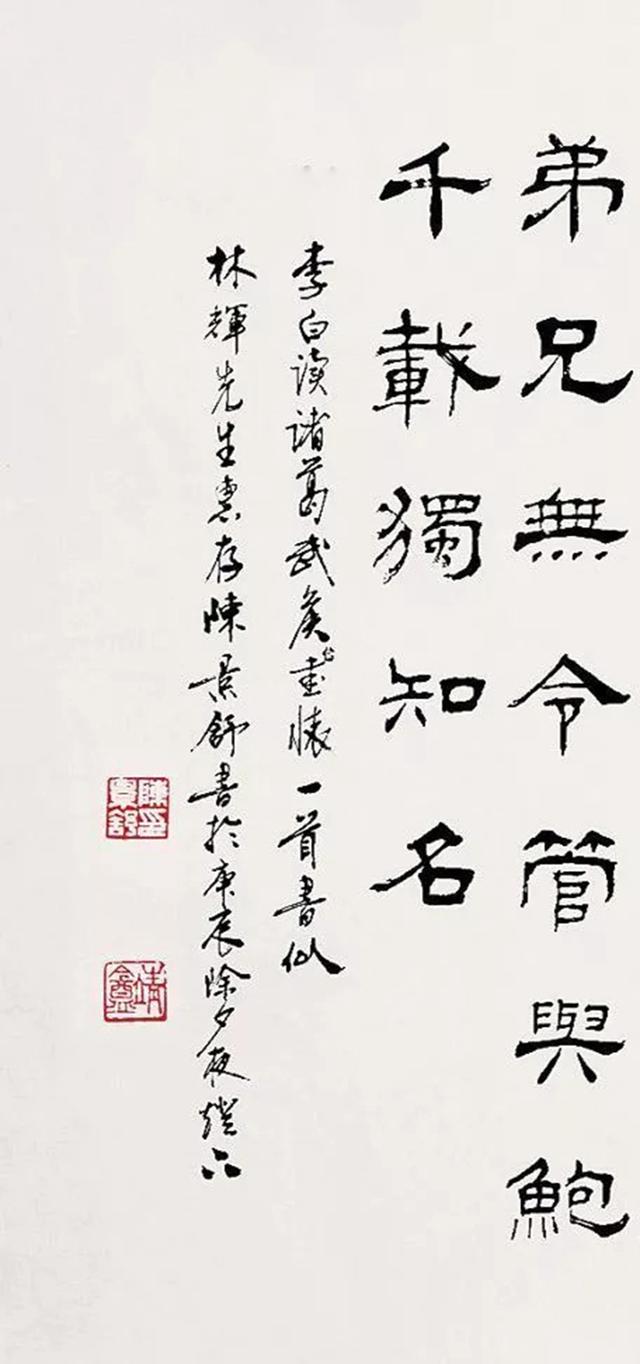 弟兄無令管與鮑
千載獨知名
李白读诸葛武侯传書懷一首書似
林輝先生惠存陳景舒書於庚辰除夕夜燈下
陳印景舒
靖盦